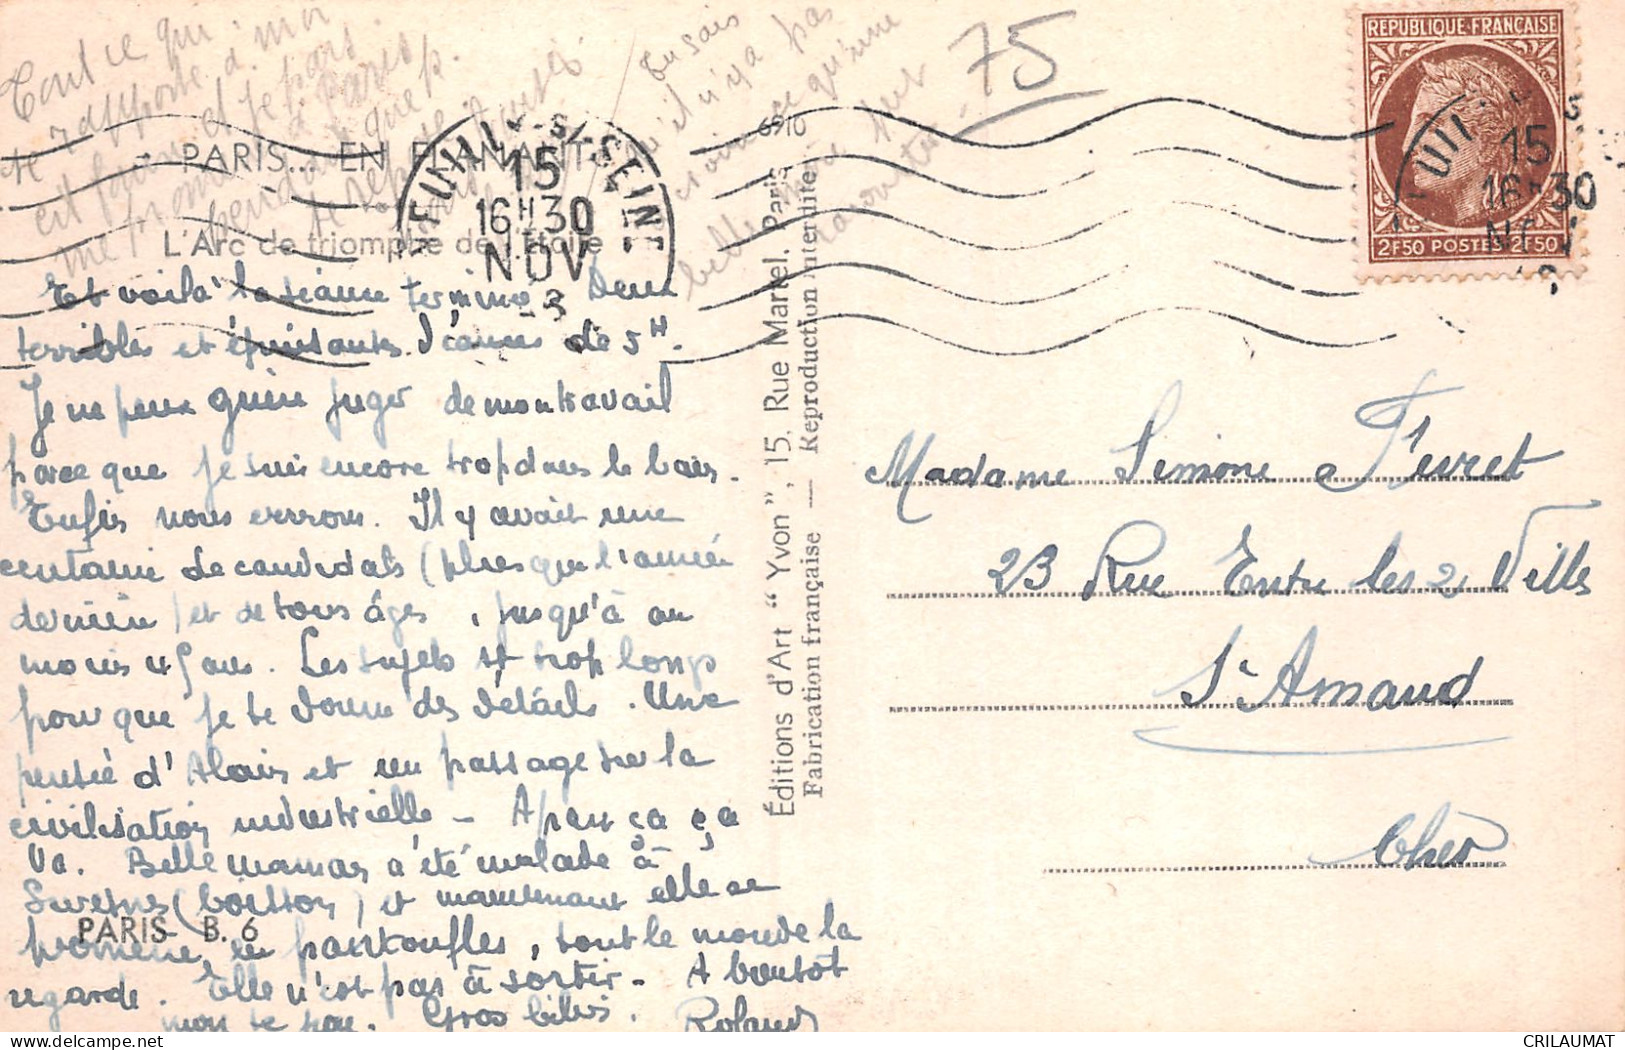 Tout ce qui
te rapporte à moi
est
me
Tu sais
qu'il n'y a pas
belle
raconter
75
6910
PARIS... EN FLANANT
L'Arc de triomphe de l'Étoile
NEUILLY S/ SEINE
15
16H30
NOV
REPUBLIQUE FRANÇAISE
2F50 POSTES 2F50
15
16H30
NOV
Et voilà la séance terminée Deux
terribles et épuisantes séances de 5H.
Je ne peux guère juger de mon travail
parce que je suis encore trop dans le bain.
Enfin nous verrons. Il y avait une
centaine de candidats (plus que l'année
dernière) et de tous âges, jusqu'à au
moins 45 ans. Les sujets st trop longs
pour que je te donne des détails. Une
pensée d'Alain et un passage sur la
civilisation industrielle - A part ça ça
va. Belle maman a été malade à
Suresnes (boisson) et maintenant elle se
promène en pantoufles, tout le monde la
regarde. Elle n'est pas à sortir - A bientôt
mon te Gros bibis. Roland
PARIS B. 6
Éditions d'Art "Yvon", 15, Rue Martel, Paris
Fabrication française — Reproduction interdite
Madame Simone Fevret
23 Rue Entre les 2 Villes
St Amand
Cher
CRILAUMAT